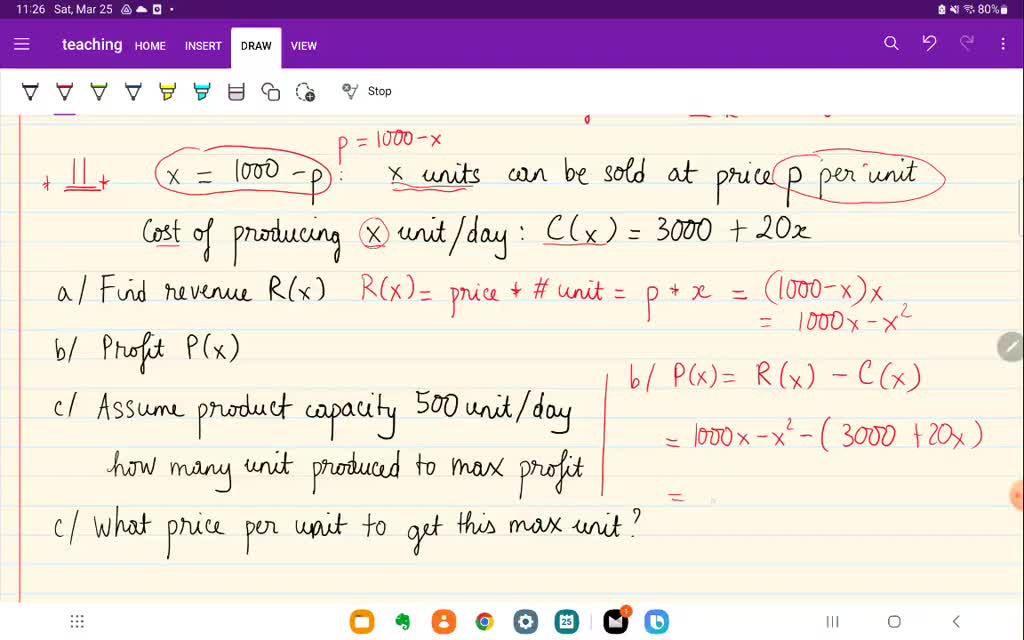 11:26 Sat, Mar 25
80%
teaching HOME INSERT DRAW VIEW
Stop
p = 1000-x
* 11 * x = 1000 - p : x units can be sold at price p per unit
Cost of producing x unit/day : C(x) = 3000 + 20x
a/ Find revenue R(x) R(x) = price * # unit = p * x = (1000-x)x
= 1000x - x²
b/ Profit P(x)
b/ P(x) = R(x) - C(x)
c/ Assume product capacity 500 unit/day
= 1000x - x² - (3000 + 20x)
how many unit produced to max profit
=
c/ What price per unit to get this max unit?
25
1